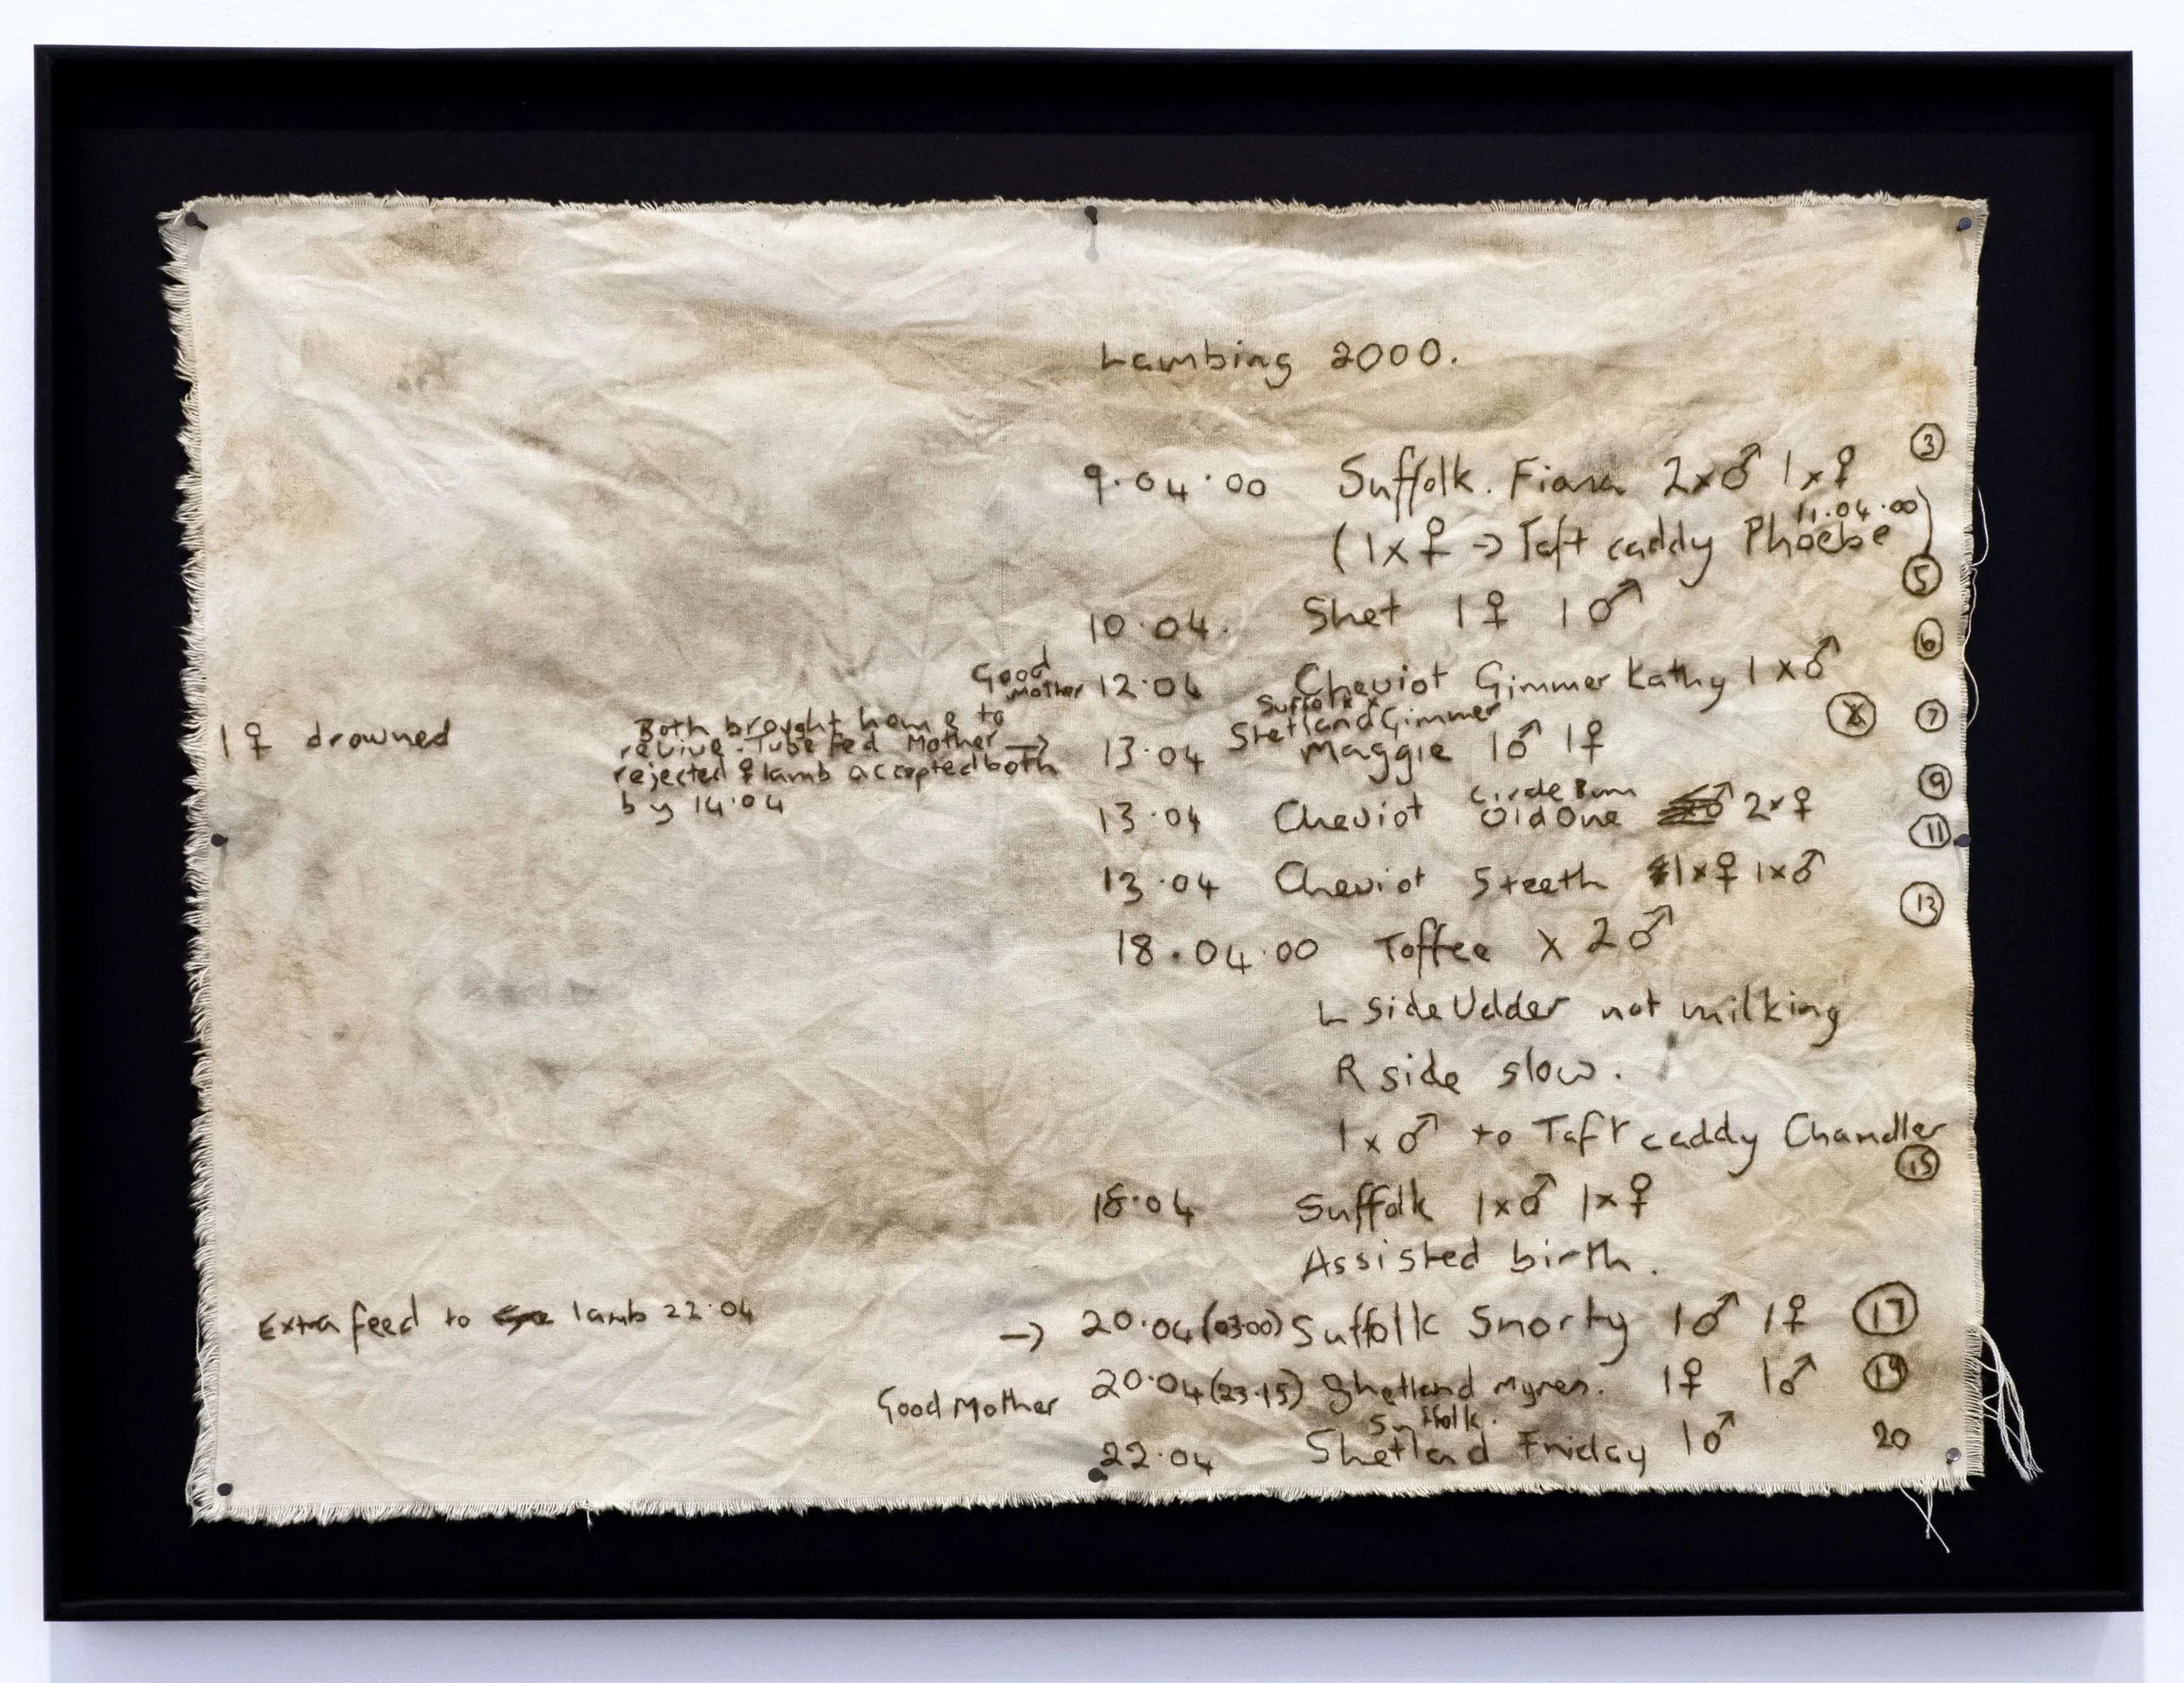 Lambing 2000.
③
9.04.00 Suffolk. Fiona 2x♂ 1x♀
11.04.00
(1x♀ → Taft caddy Phoebe)
⑤
10.04. Shet 1♀ 1♂
⑥
Good Mother 12.04 Cheviot Gimmer Kathy 1x♂
Suffolk x
Shetland Gimmer ⑦
1♀ drowned
Both brought home to
revive. Tube fed Mother →
rejected ♀ lamb accepted both
by 14.04
13.04 Maggie 1♂ 1♀
⑨
13.04 Cheviot Old One 2x♀
⑪
13.04 Cheviot 5 teeth 1x♀ 1x♂
⑬
18.04.00 Toffee x 2♂
L side Udder not milking
R side slow.
1x♂ to Taft caddy Chandler
⑮
18.04 Suffolk 1x♂ 1x♀
Assisted birth.
Extra feed to lamb 22.04
→ 20.04 (03.00) Suffolk Snorty 1♂ 1♀ ⑰
Good Mother 20.04 (23.15) Shetland 1♀ 1♂ ⑲
Suffolk.
22.04 Shetland Friday 1♂ 20